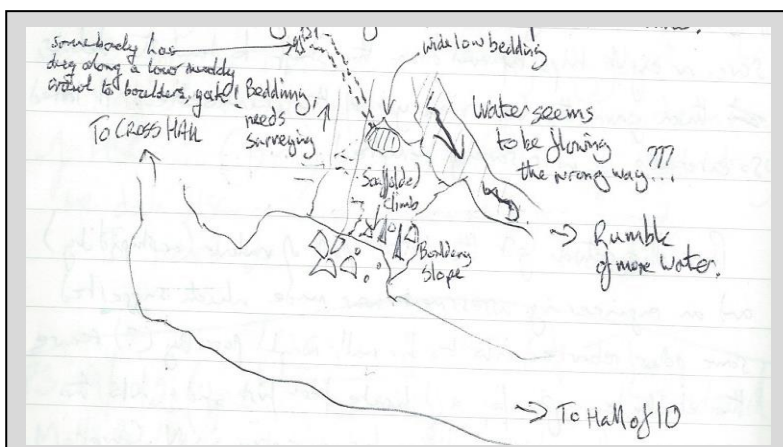 somebody has
dug along a low muddy
crawl to boulders, yuk!
To CROSS HALL
Bedding,
needs
Surveying
wide low bedding!
Water seems
to be flowing
the wrong way???
Scaffolded
climb
Bouldery
slope
→ Rumble
of more water.
→ To Hall of 10